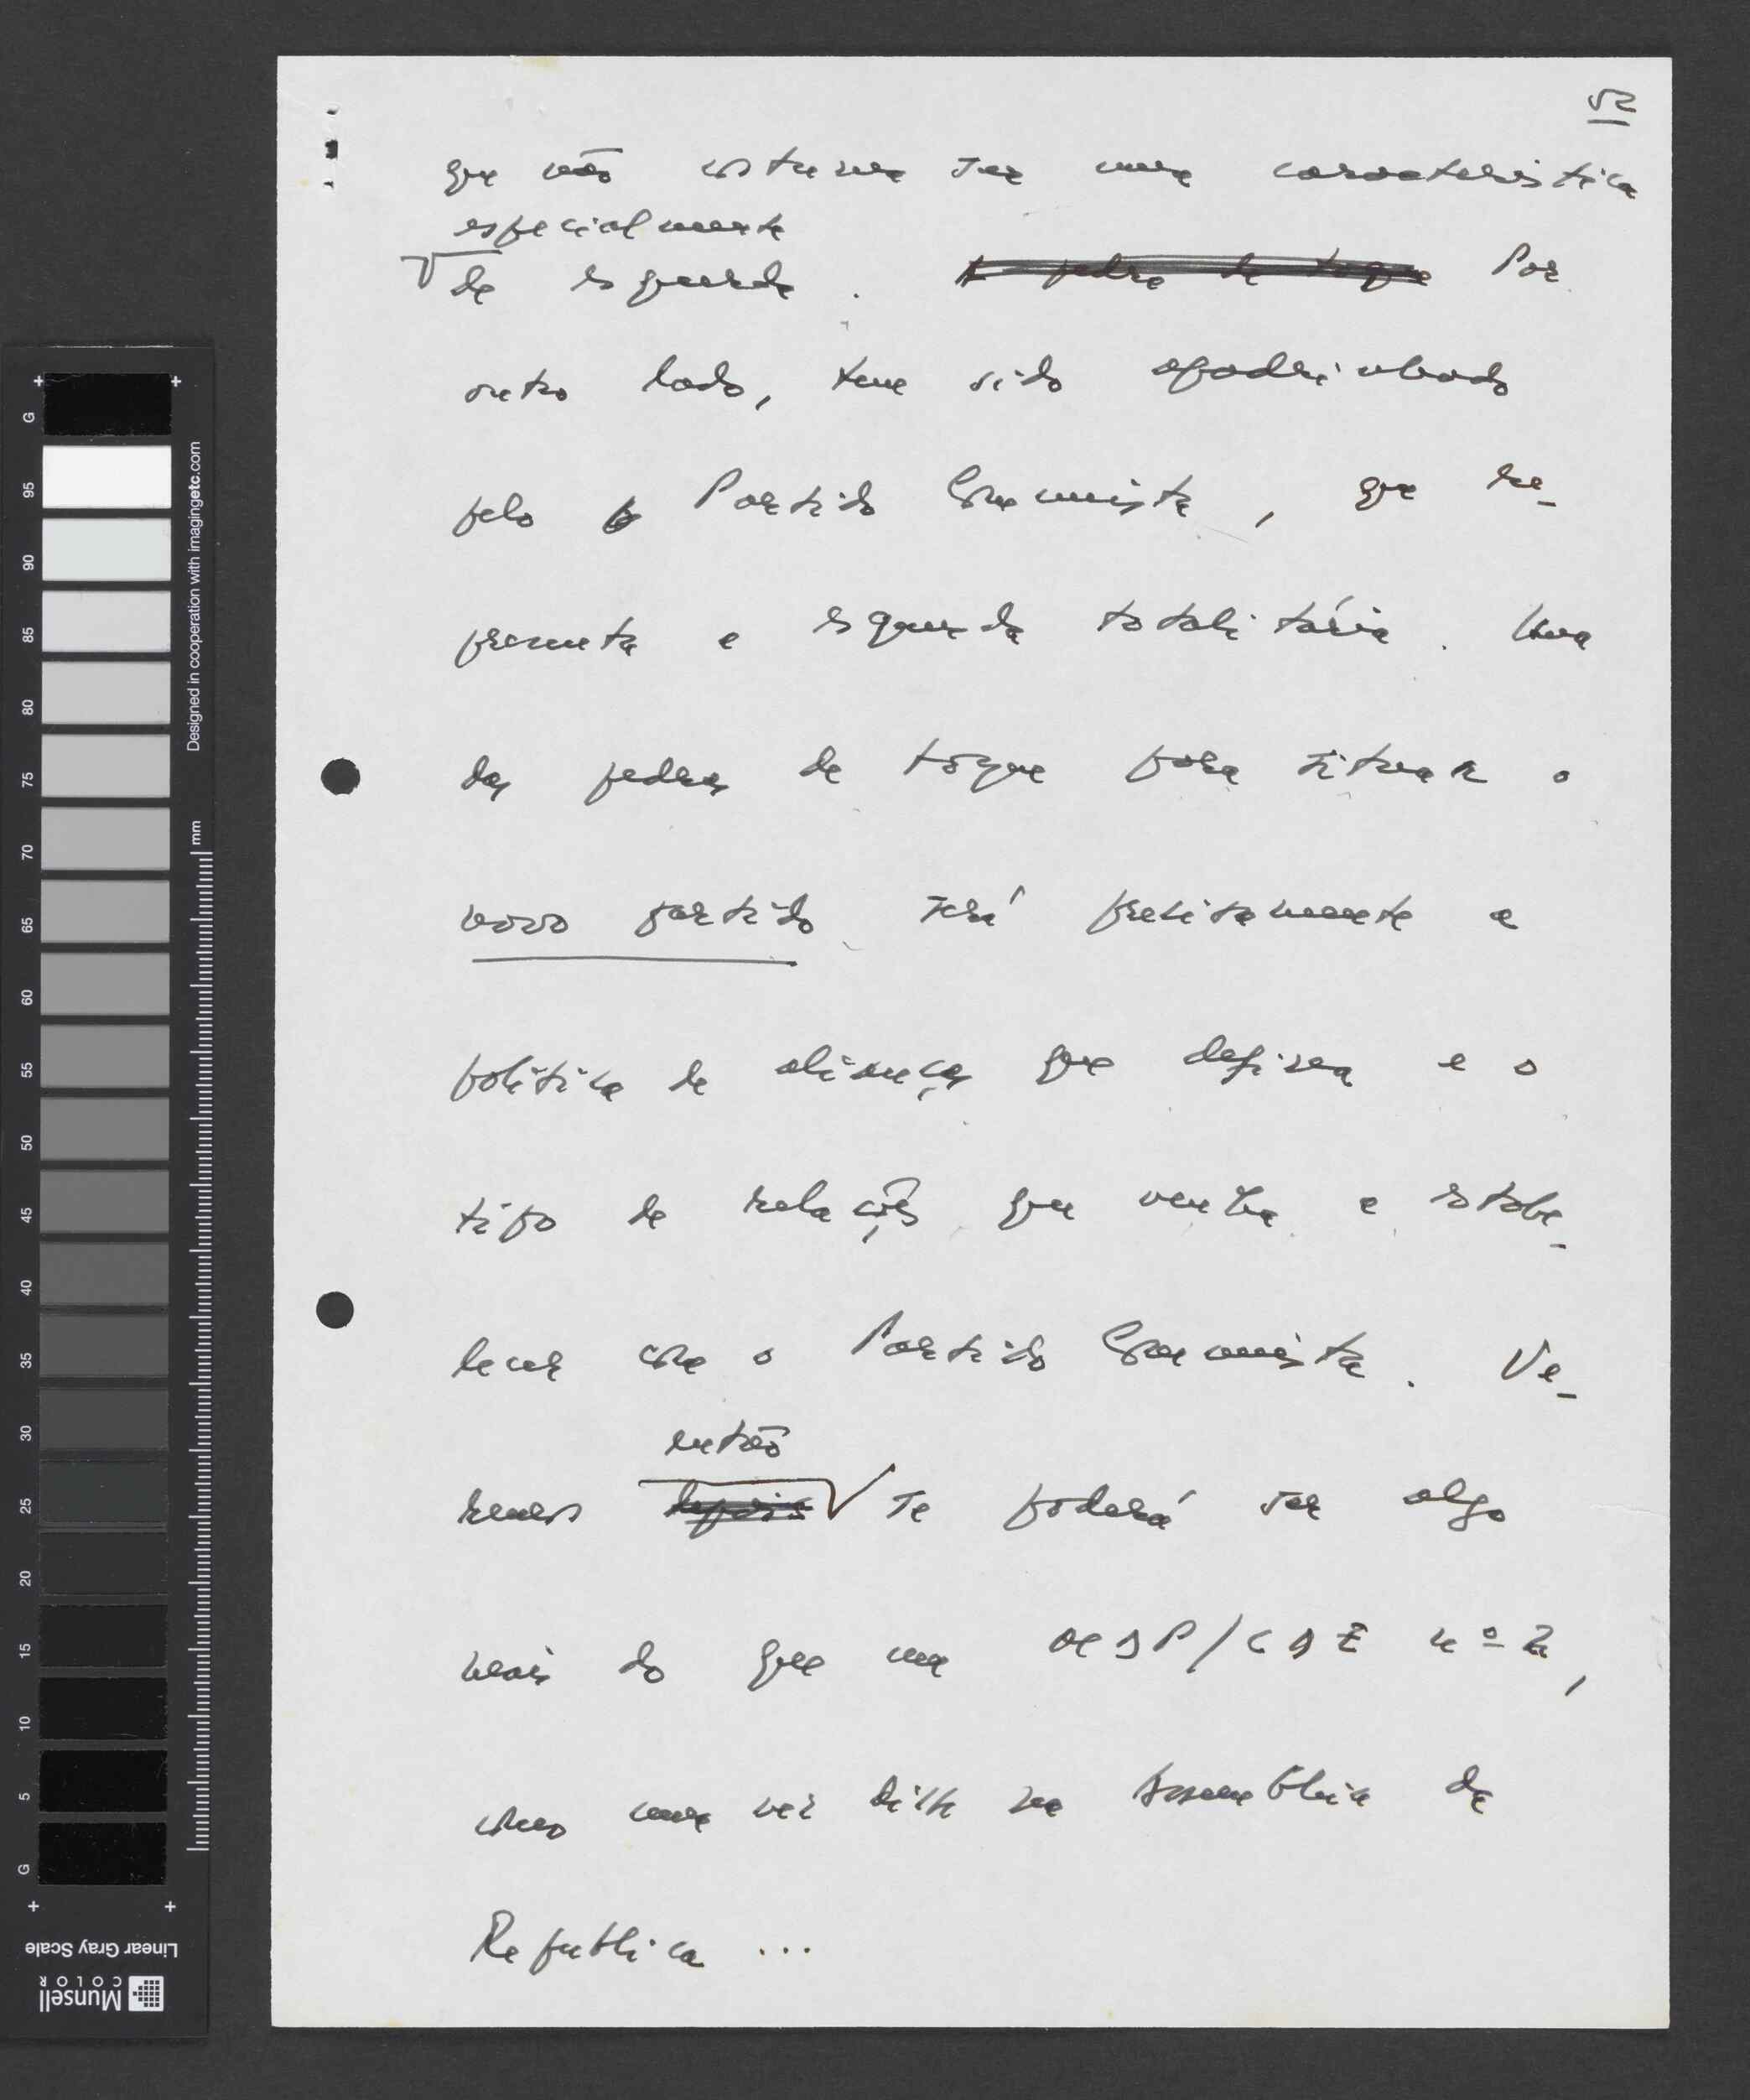 52
que não costuma ser uma característica
especialmente
de esquerda. A pedra de toque Por
outro lado, tem sido apadrinhado
pelo Partido Comunista, que re-
presenta a esquerda totalitária. Uma
das pedras de toque para situar o
novo partido será precisamente a
política de alianças que defina e o
tipo de relações que venha a estabe-
lecer com o Partido Comunista. Ve-
então
remos depois se poderá ser algo
mais do que um MDP/CDE nº 2,
como uma vez disse na Assembleia da
República ...
G
95
90
85
80
75
70
65
60
55
50
45
40
35
30
25
20
15
10
5
G
mm
Designed in cooperation with imagingetc.com
Linear Gray Scale
Munsell
COLOR